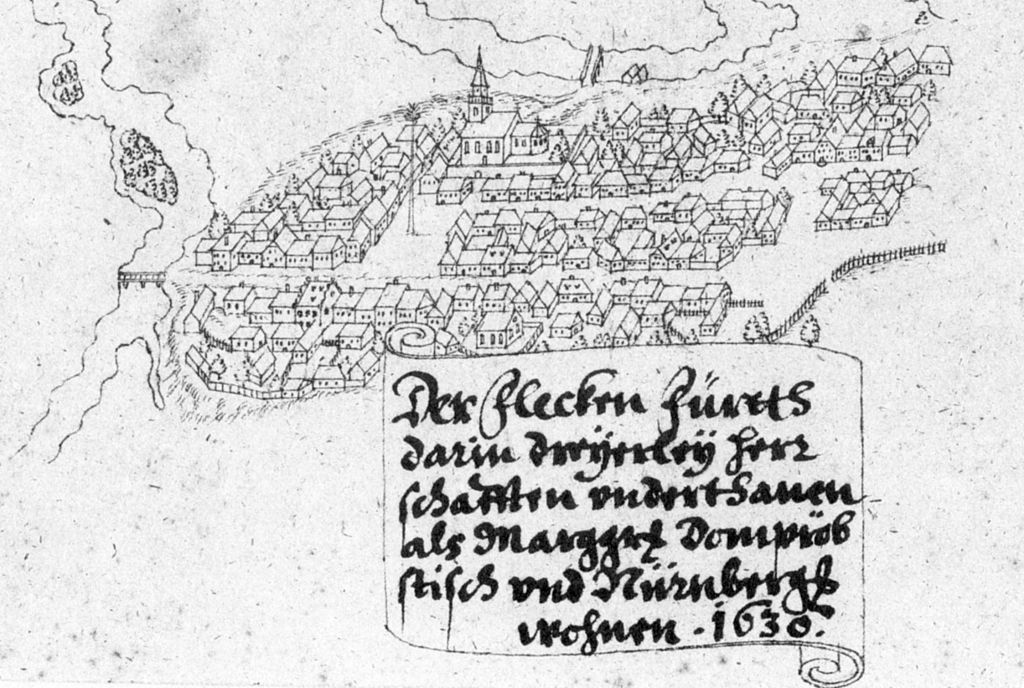 Der Flecken Fürtts
darin dreÿerleÿ herr
schafften vnderthanen
als Marggrf Dompröb
stisch vnd Nürnbergs
wohnen . 1630.